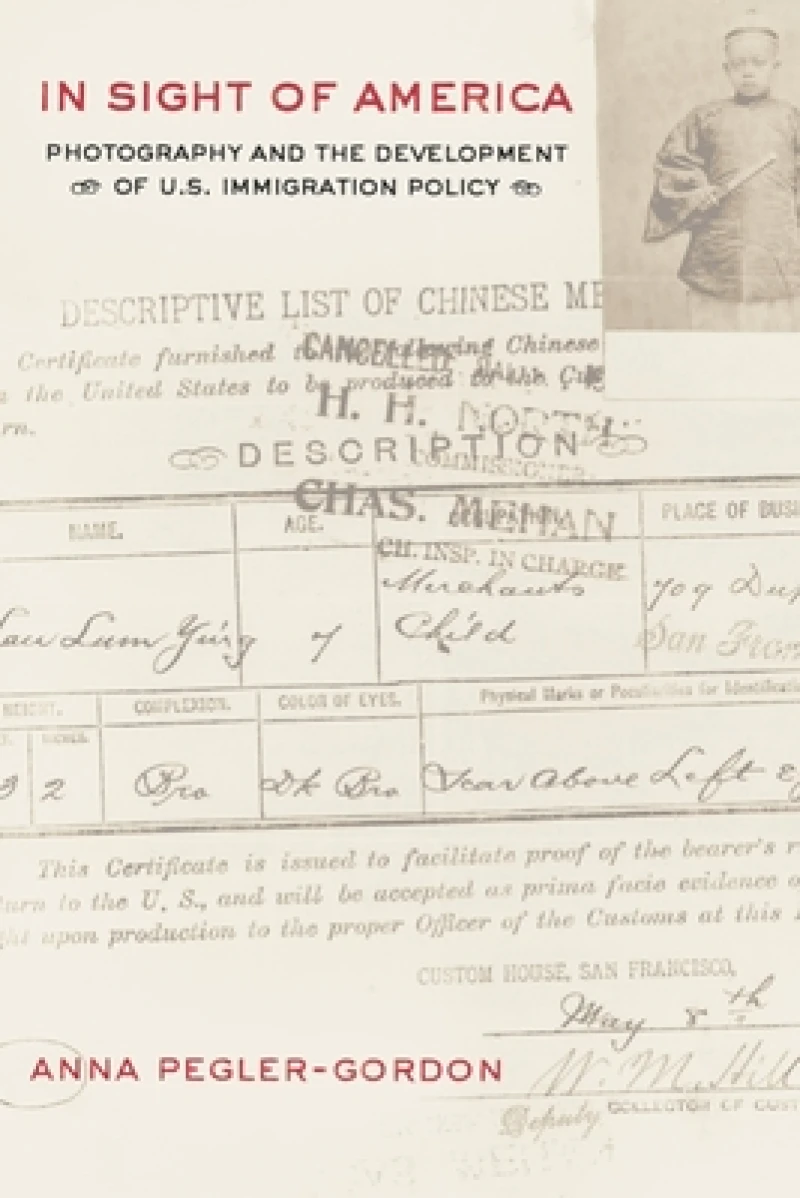 IN SIGHT OF AMERICA
PHOTOGRAPHY AND THE DEVELOPMENT
OF U.S. IMMIGRATION POLICY
DESCRIPTIVE LIST OF CHINESE ME
Certificate furnished following Chinese
the United States to be produced to the
rn.
CANCELLED
H. H. NORTH
COMMISSIONER
DESCRIPTION
CHAS. MEHAN
CH. INSP. IN CHARGE
NAME.
AGE.
PLACE OF BUSI
Lau Lum Ying
7
Merchants
Child
709 Dup
San Fran
HEIGHT.
COMPLEXION.
COLOR OF EYES.
Physical Marks or Peculiarities for Identificatio
INCHES.
2
Bro
Dk Bro
Scar Above Left Ey
This Certificate is issued to facilitate proof of the bearer's r
turn to the U. S., and will be accepted as prima facie evidence o
ght upon production to the proper Officer of the Customs at this
CUSTOM HOUSE, SAN FRANCISCO,
May 8th
ANNA PEGLER-GORDON
W. M. Hill
Deputy COLLECTOR OF CUST